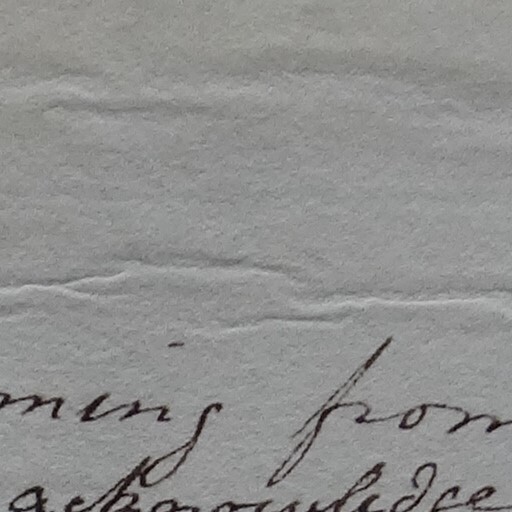 ming from
acknowledge